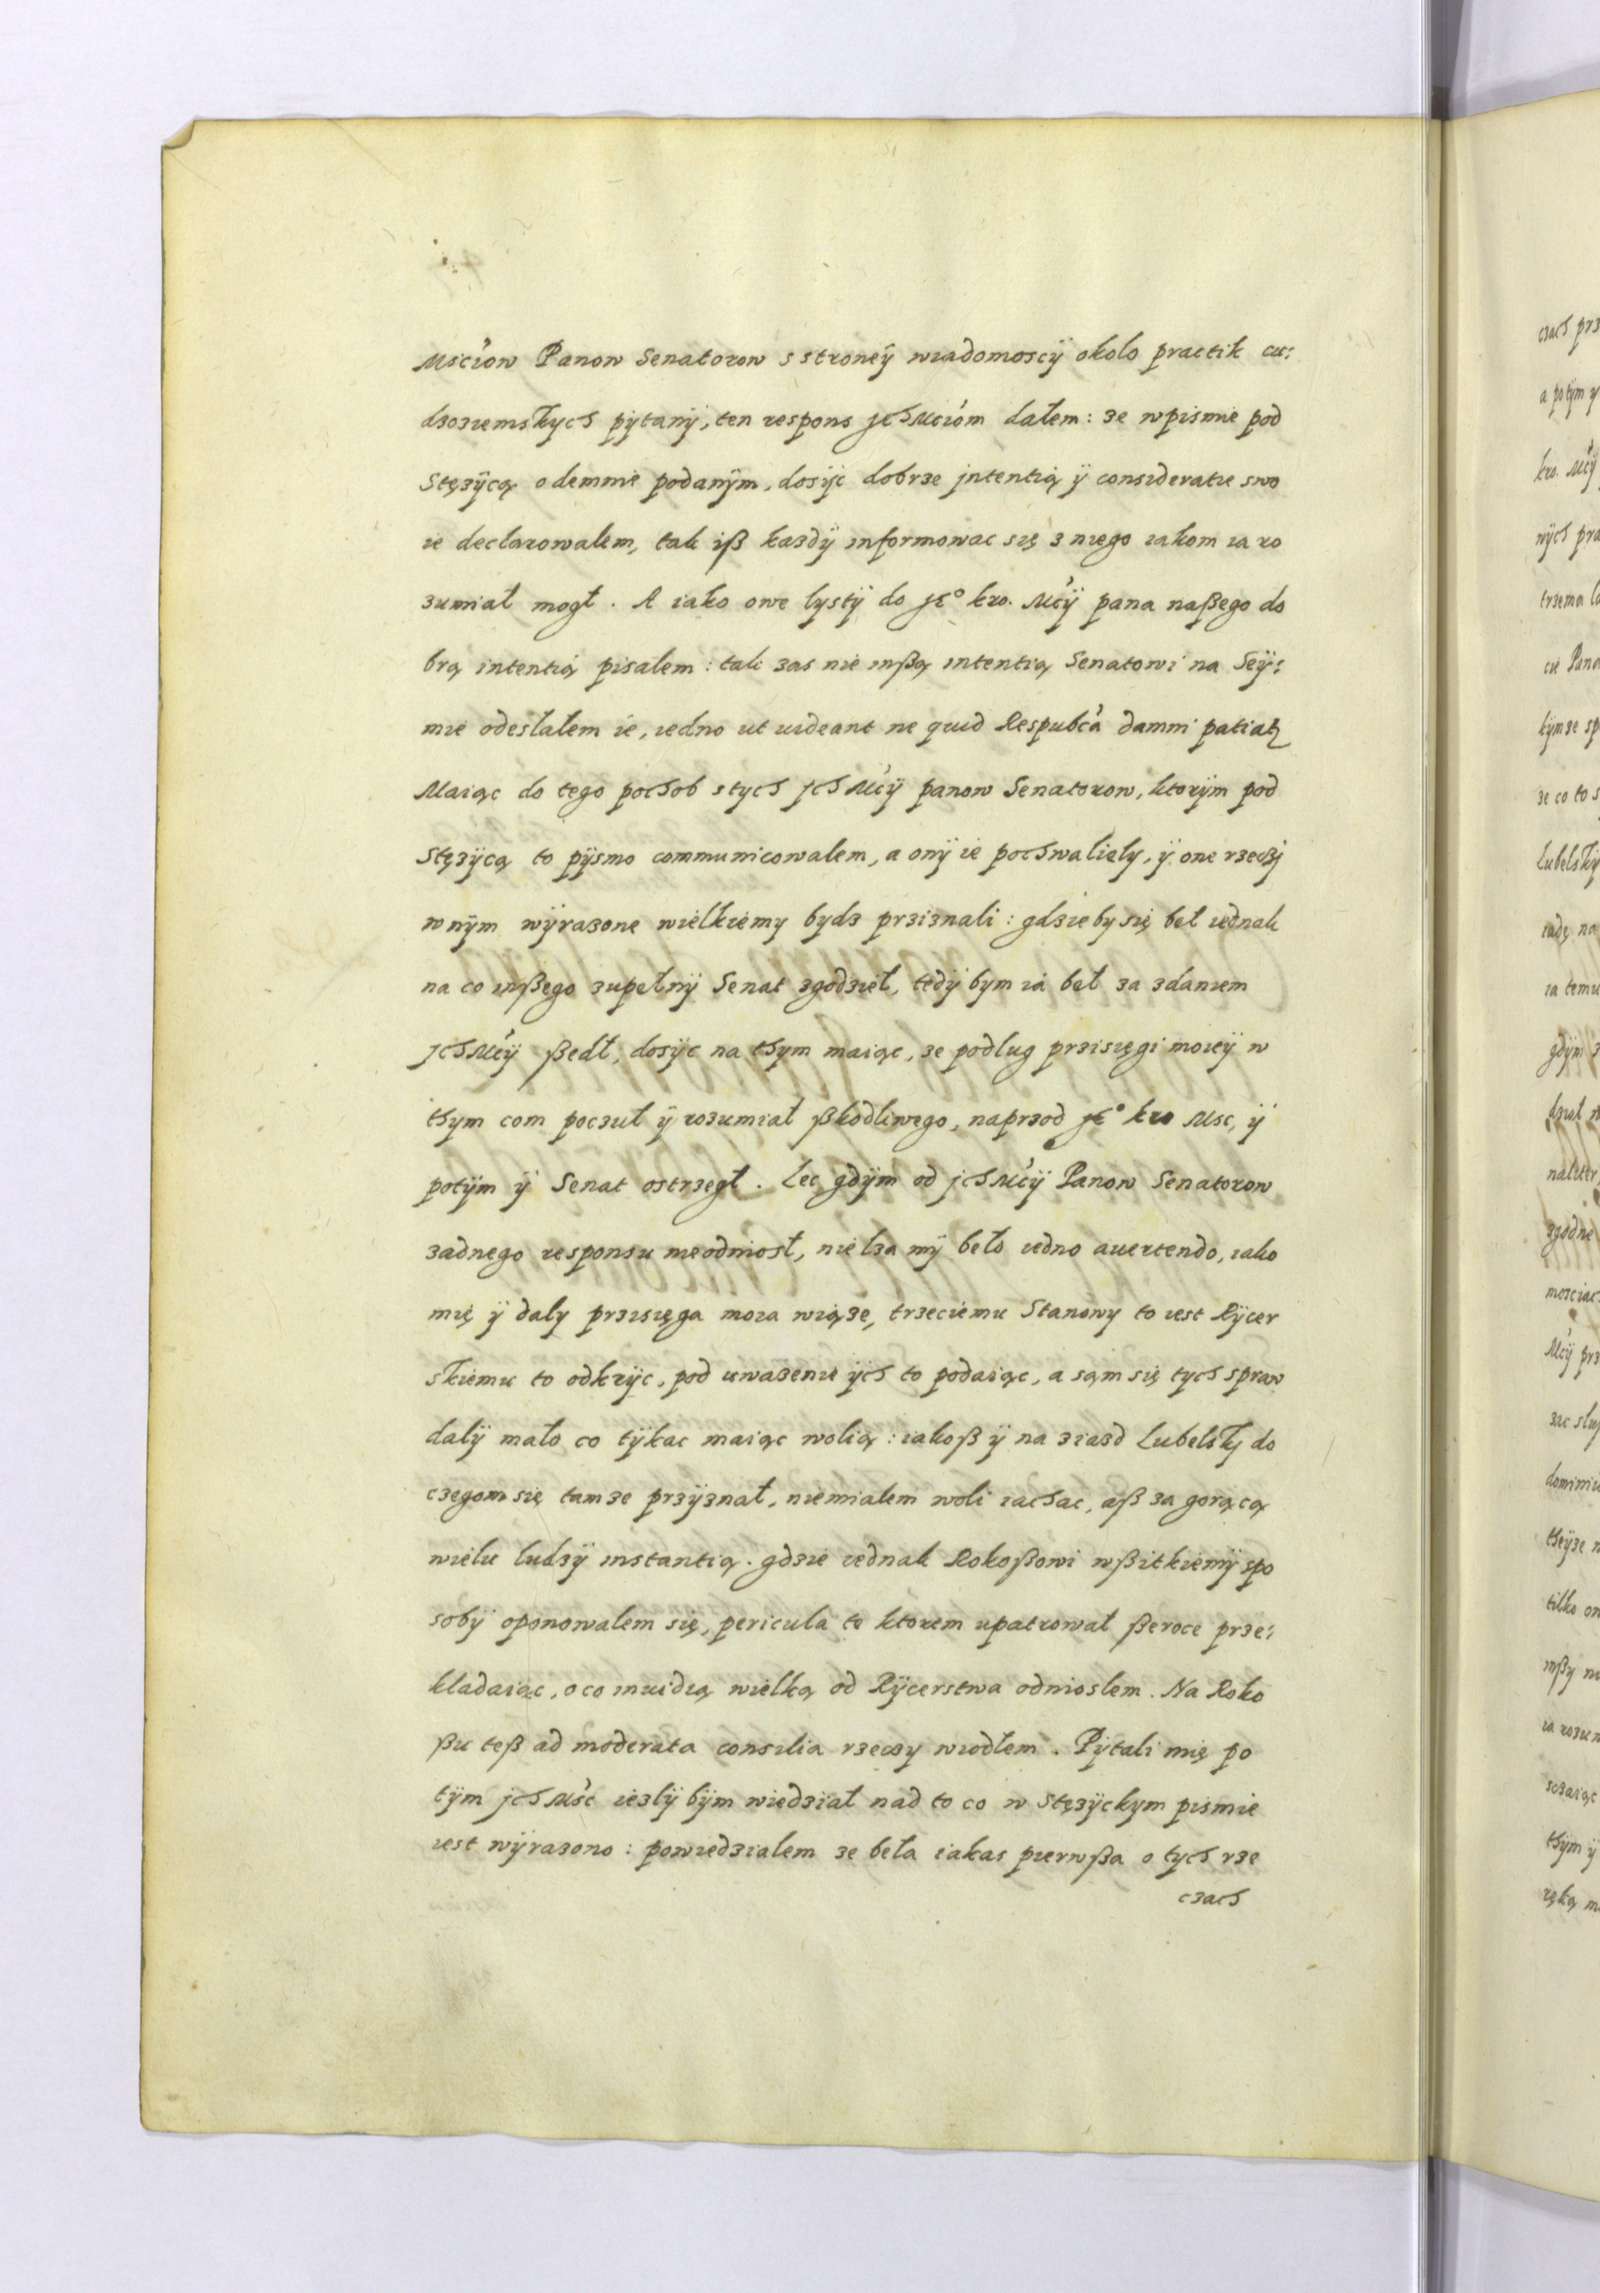 Mscíow Panow Senatorow s stroneÿ wiadomosciÿ okolo practik cu:
dzoziemskych pÿtanÿ, ten respons jch Mcióm dałem: ze w pismie pod
Stęzÿcą odemnie podanÿm, dosÿc dobrze jntentią ÿ consideratie swo
ie declarowalem, tak iß kazdÿ informowac się z niego iakom ia ro
zumiał mogł. A iako owe lystÿ do je° kro. Mcÿ pana naßego do
brą intentią pisalem: tak zas nie inßą intentią Senatowi na Seÿ:
mie odesłałem ie, iedno ut uideant ne quid Respubca damni patiatz
Maiąc do tego pochob s tych jch Mcÿ panow Senatorow, ktorÿm pod
Stęzÿcą to pÿsmo communicowalem, a onÿ ie pochwaliely, ÿ one rzeczj
w nÿm wÿrazone wielkiemy bydz prziznali: gdzie by się beł iednak
na co inßego zupełnÿ Senat zgodzieł, tedÿ bym ia beł za zdaniem
jch Mcÿ ßedł, dosÿc na thym maiąc, ze podlug przisięgi moieÿ w
thym com poczuł ÿ rozumiał ßkodliwego, naprzod je° kro Msc, ÿ
potÿm ÿ Senat ostrzegł. Lec gdÿm od jch Mcÿ Panow Senatorow
zadnego responsu nieodniosł, nielza mÿ beło iedno auertendo, iako
mię ÿ daly przisięga moia wiąze, trzeciemu Stanowy to iest Rÿcer
skiemu to odkrÿc, pod uwazenie ÿch to podaiąc, a sąm się tych spraw
dalÿ mało co tÿkac maiąc wolią: iakoß ÿ na ziazd Lubelskj do
czegom się tamze przÿznał, niemialem woli iachac, aß za gorącą
wielu ludzÿ instantią. gdzie iednak Rokoßowi wßitkiemÿ spo
sobÿ oponowalem się, pericula te ktorem upatrował ßeroce prze:
kladaiąc, o co inuidią wielką od Rÿcerstwa odnioslem. Na Roko
ßu teß ad moderata consilia rzeczy wiodłem. Pÿtali mię po
tÿm jch Msc ieslÿ bÿm wiedział nad to co w Stęzÿckym pismie
iest wÿrazono: powiedzialem ze beła iakas pierwßa o tych rze
czach